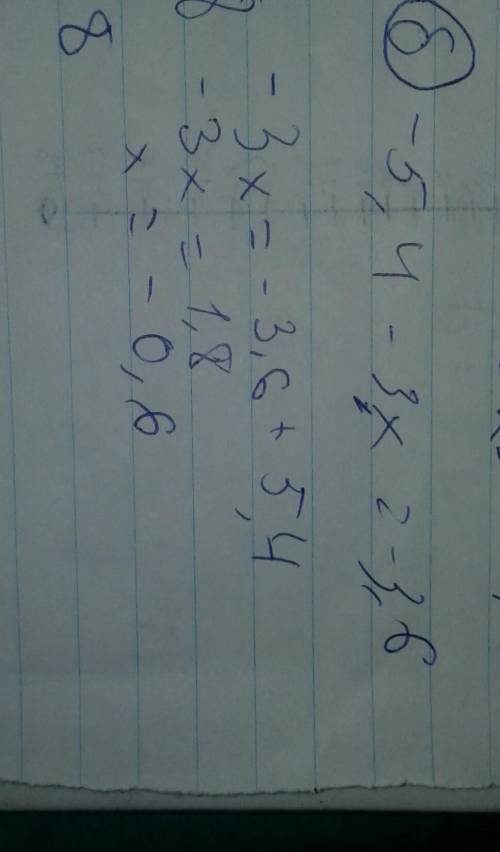 б) -5,4 - 3x = -3,6
-3x = -3,6 + 5,4
-3x = 1,8
x = -0,6
8